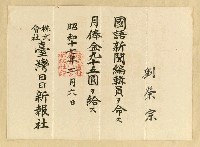 劉榮宗
國語新聞編輯員ヲ命ス
月俸金九十五圓ヲ給ス
昭和十七年 月六日
株式會社臺灣日日新報社